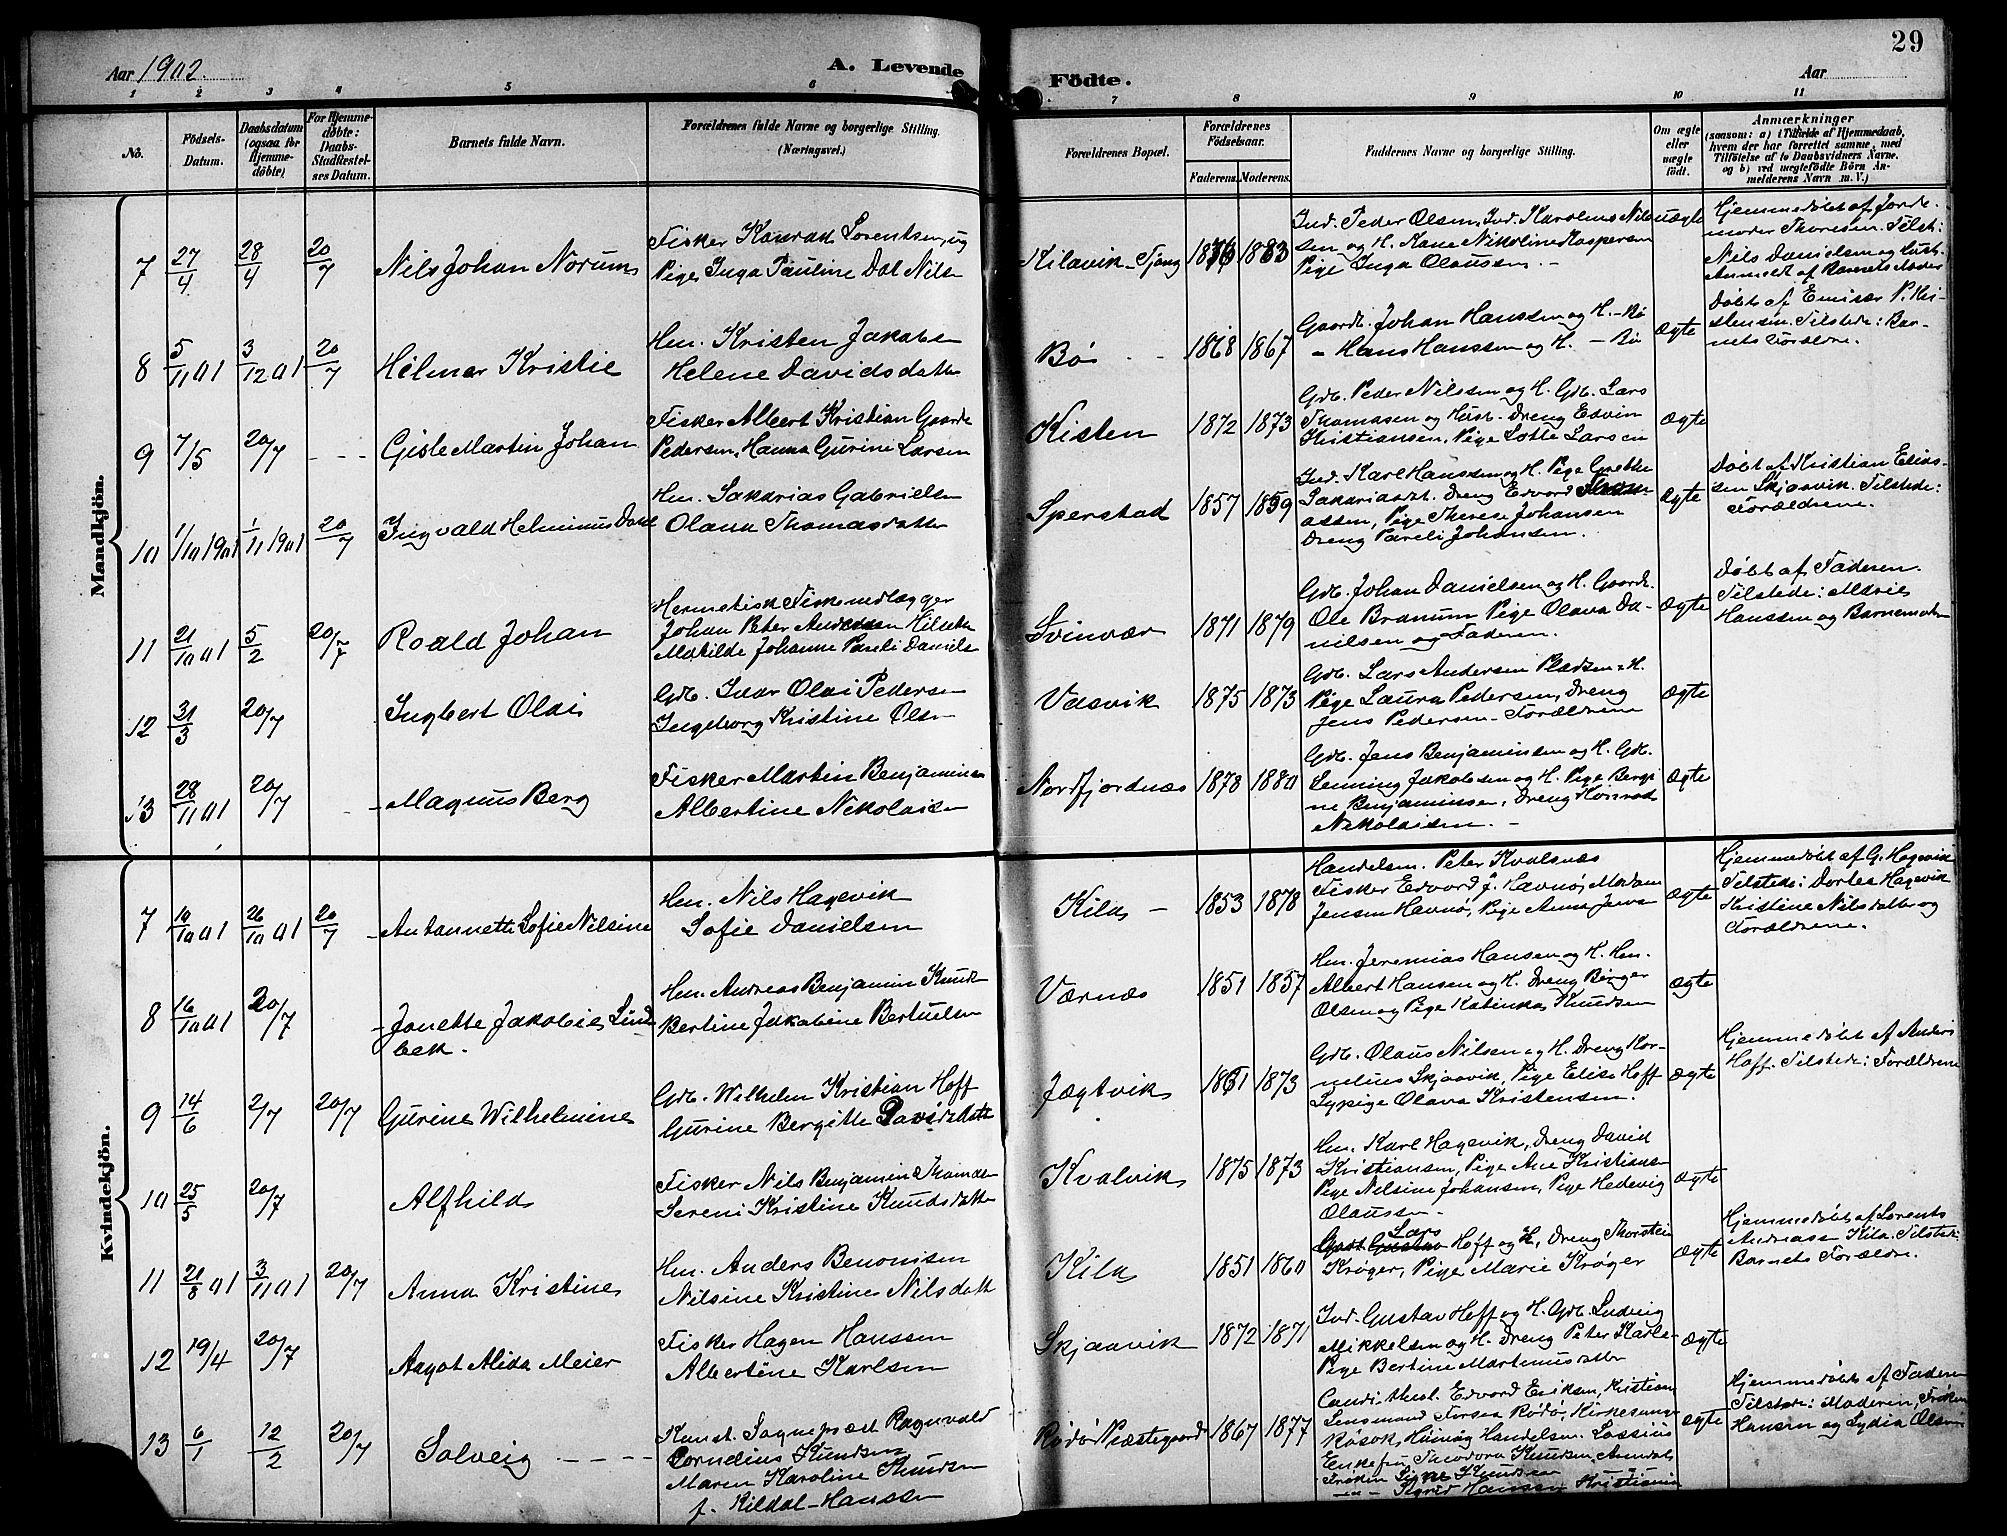 Aar 1902.
A. Levende
Födte.
Aar
29
1 2 3 4 5 6 7 8 9 10 11
No.
Födsels-
Datum.
Daabsdatum
(ogsaa for
Hjemme-
döbte)
For Hjemme-
döbte:
Daabs-
Stadfæstel-
ses Datum.
Barnets fulde Navn.
Forældrenes fulde Navne og borgerlige Stilling.
(Næringsvei.)
Forældrenes Bopæl.
Forældrenes
Födselsaar.
Faderens. Moderens.
Faddernes Navne og borgerlige Stilling.
Om ægte
eller
uægte
födt.
Anmærkninger
(saasom: a) i Tilfælde af Hjemmedaab,
hvem der har forrettet samme, med
Tilföielse af to Daabsvidners Navne.
og b) ved uegtefödte Börn An-
melderens Navn m. V.)
Mandkjön.
7 27/4 28/4 20/7 Nils Johan Norum
Fisker Konrad Lorentsen og
Pige Inga Pauline Dal Nils
Kilavik - Tjong 1883
Ind. Peder Olsen, Ind. Karolius Nil-
sen og H. Kane Nikoline Kaspersen
Pige Inga Olaussen. -
uægte
Hjemmedöbt af Jorde-
moder Thoresen. Tilst:
Nils Danielsen og
Anmeldt af Barnets Moder
8 5/11 01 3/12 01 20/7 Hilmar Kristie
Hm. Kristen Jakobs
Helene Davidsdatter
Bö 1868 1867
Gaardb. Johan Hanssen og H. - Bö
- Hans Hanssen og H. - Bö
ægte
Döbt af Emisær P. Kri-
stensen. Tilstede: Bar-
nets Forældre.
9 7/5 20/7 - - - Gisle Martin Johan
Fisker Albert Kristian Gaarde
Pedersen, Hanna Gurine Larsen
Kisten 1872 1873
Gdb. Peder Nilssen og H. Gdb. Lars
Thomassen og Hust. Dreng Edvin
Kristiansen, Pige Lotte Larsen
ægte
10 1/10 1901 1/11 1901 20/7 Ingvald Helminus Dahl
Hm. Sakarias Gabrielsen
Olava Thomasdatter
Sperstad 1857 1859
Ind. Karl Hanssen og H. Pige Grethe
Sakariasdt. Dreng Edvard
Pige Therese Johansen
Dreng Pareli Johansen.
ægte
Döbt af Kristian Elias-
sen Skjaavik. Tilstede:
Forældrene.
11 21/10 01 5/2 20/7 Roald Johan
Hermetisk Fiskenedlægger
Johan Peter Andersen
Matilde Johanne Pareli Daniels
Svinvær 1871 1879
Gdb. Johan Danielsen og H. Gaardb.
Ole Branum Pige Olava Da-
nilsen og Faderen.
ægte
Döbt af Faderen.
Tilstede:
Hanssen og Barnemoder
12 31/3 20/7 Ingbert Olai
Gdb. Ivar Olai Pedersen
Ingeborg Kristine Ols
Vasvik 1875 1873
Gdb. Lars Andersen Pladsen & H.
Pige Laura Pedersen, Dreng
Jens Pedersen - Forældrene
ægte
13 28/11 01 20/7 - Magnus Berg
Fisker Martin Benjaminsen
Albertine Nikolaisen
Nordfjordnæs 1878 1880
Gdb. Jens Benjaminsen og H. Gdb.
Lenning Jakobsen og H. Pige Bergi-
ne Benjaminsen, Dreng Konrad
Nikolaisen. -
ægte
Kvindekjön.
7 10/10 01 26/10 01 20/7 Antannette Sofie Nilsine
Hm. Nils Hagevik
Sofie Danielsen
Kila - 1853 1878
Handelsm. Peter Kvalsnæs
Fisker Edvard J. Havnö, Madam
Jensen Havnö, Pige Anna Jens
ægte
Hjemmedöbt af G. Hagevik
Tilstede: Dortea Hagevik
Kristine Nilsdatter og
Forældrene.
8 16/10 01 20/7 - Janette Jakobie Lind-
bek.
Hm. Andreas Benjamin Knuds
Bertine Jakobine Bertuelsen
Værnæs 1851 1857
Hm. Jeremias Hansen og H. Hm.
Albert Hansen og H. Dreng Birger
Olsen og Pige Katinka Knudsen
ægte
9 14/6 2/7 20/7 Gurine Wilhelmine
Gdb. Wilhelm Kristian Hoff
Gurine Bergitte Davidsdatter
Jægtvik 1861 1873
Gdb. Olaus Nilsen og H. Dreng Kor-
nelius Skjaavik, Pige Elise Hoff
Sypige Olava Kristensen.
ægte
Hjemmedöbt af Anders
Hoff. Tilstede: Forældrene
10 25/5 20/7 Alfhild
Fisker Nils Benjamin Thomas
Sereni Kristine Knudsdatter
Kvalvik 1875 1873
Hm. Karl Hagevik, Dreng David
Kristiansen, Pige Ane Kristians
Pige Nilsine Johansen, Pige Hedevig
Olaussen -
ægte
11 21/8 01 3/11 01 20/7 Anna Kristine
Hm. Anders Benonisen
Nilsine Kristine Nilsdatt
Kila 1851 1860
Lars
Gdb. Gustav Hoff og H. Dreng Thorstein
Kröger, Pige Marie Kröger
ægte
Hjemmedöbt af Lorents
Andreass. Kila. Tilstede:
Barnets Forældre.
12 19/4 20/7 Aagot Alida Meier
Fisker Hagen Hanssen
Albertine Karlsen
Skjaavik 1872 1871
Ind. Gustav Hoff og H. Gdb. Ludvig
Mikkelsen og H. Dreng Peter Karls-
Pige Bertine Martinusdatter
ægte
13 6/1 12/2 20/7 Solveig - - - -
Konst. Sogneprest Ragnvald
Cornelius Knudsen
Maren Karoline Knudsen
f. Kildal-Hanssen
Rödö Præstegaard 1867 1877
Cand. theol. Edvard Eriksen, Kristian
Lensmand Forsaa Rödö, Kirkesanger
Rösok, Handelsm. Lossius
Enkefru Theodora Knudsen, Arendal
Fröken Signe Knudsen
- " - Sigrid Hanssen Kristiania
ægte
Hjemmedöbt af Faderen
Tilstede: Moderen, Fröken
Hansen og Lydia Olsen